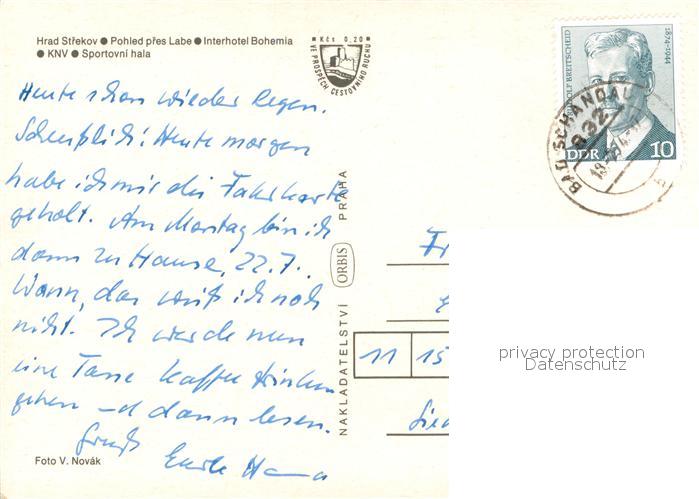 Hrad Střekov ● Pohled přes Labe ● Interhotel Bohemia
● KNV ● Sportovní hala
Kčs 0,20
VE PROSPĚCH CESTOVNÍHO RUCHU
RUDOLF BREITSCHEID
1874-1944
DDR 10
BAD SCHANDAU
832
Heute schon wieder Regen.
Scheußlich! Heute morgen
habe ich mir die Fahrkarte
geholt. Am Montag bin ich
dann zu Hause, 22.7.
Wann, das weiß ich noch
nicht. Ich werde nun
eine Tasse Kaffee trinken
gehen und dann lesen.
Gruß
NAKLADATELSTVÍ ORBIS PRAHA
Fr
11 15
privacy protection
Datenschutz
Foto V. Novák